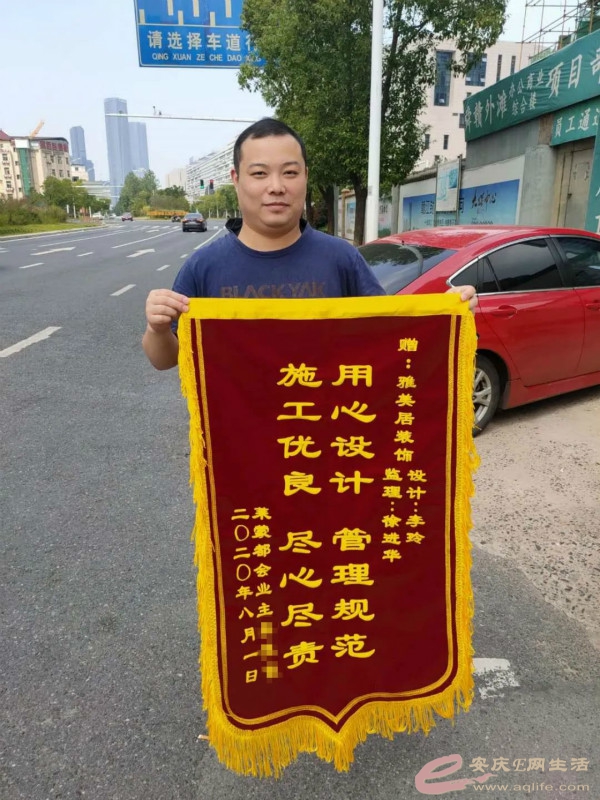 请选择车道行
QING XUAN ZE CHE DAO
赣外滩
办公商业
综合楼
项目部
员工通道
BLACKYAK
赠：雅美居装饰
设计：李玲
监理：徐进华
用心设计 管理规范
施工优良 尽心尽责
莱蒙都会业主
二〇二〇年八月一日
安庆E网生活
www.aqlife.com